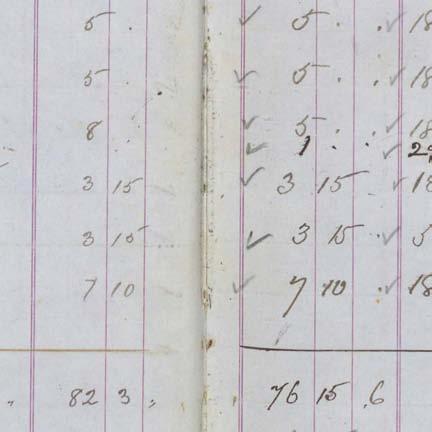 5 . ✓ 5 . . ✓ 18
5 . ✓ 5 . . ✓ 18
8 . ✓ 5 . . ✓ 18
✓ 1 . . ✓
3 15 ✓ 3 15 ✓ 18
3 15 ✓ 3 15 . ✓ 5
7 10 ✓ 7 10 . ✓ 18
82 3 " 76 15 .6